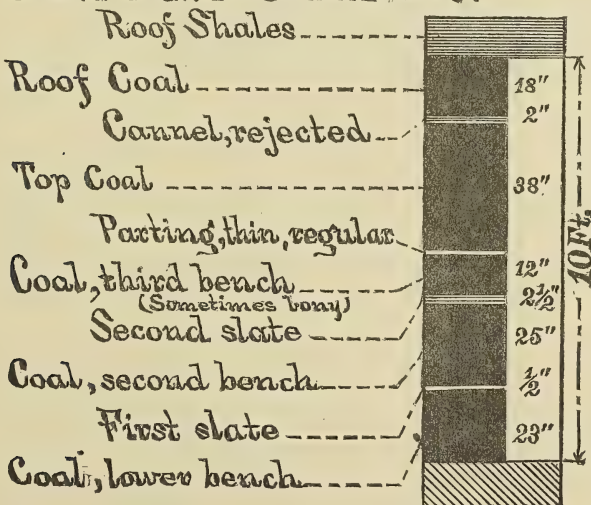 Roof Shales
Roof Coal 18"
Cannel, rejected 2"
Top Coal 38"
Parting, thin, regular
Coal, third bench 12"
(Sometimes bony)
Second slate 2½"
Coal, second bench 25"
First slate ½"
Coal, lower bench 23"
10 Ft.